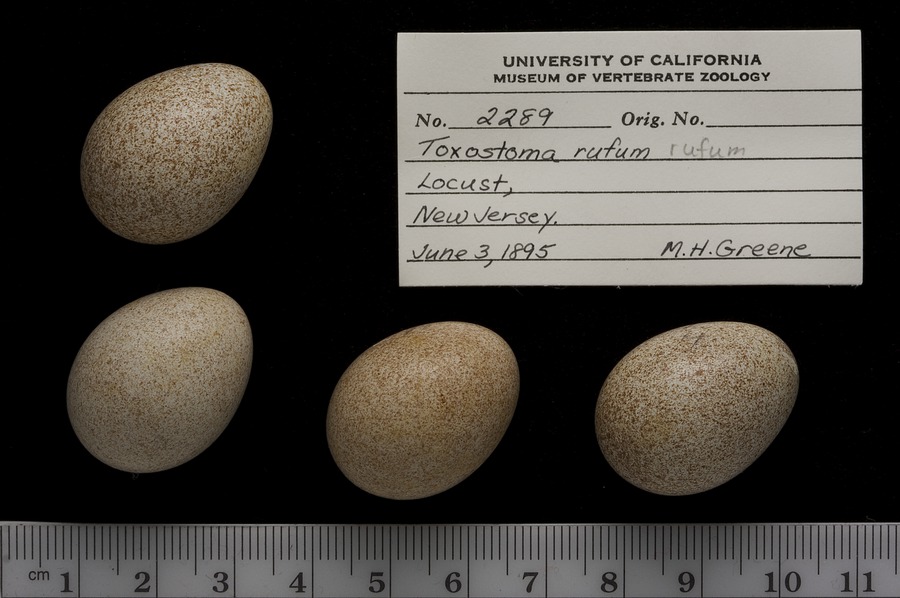 UNIVERSITY OF CALIFORNIA
MUSEUM OF VERTEBRATE ZOOLOGY
No. 2289 Orig. No.
Toxostoma rufum rufum
Locust,
New Jersey.
June 3, 1895 M.H.Greene
cm 1 2 3 4 5 6 7 8 9 10 11